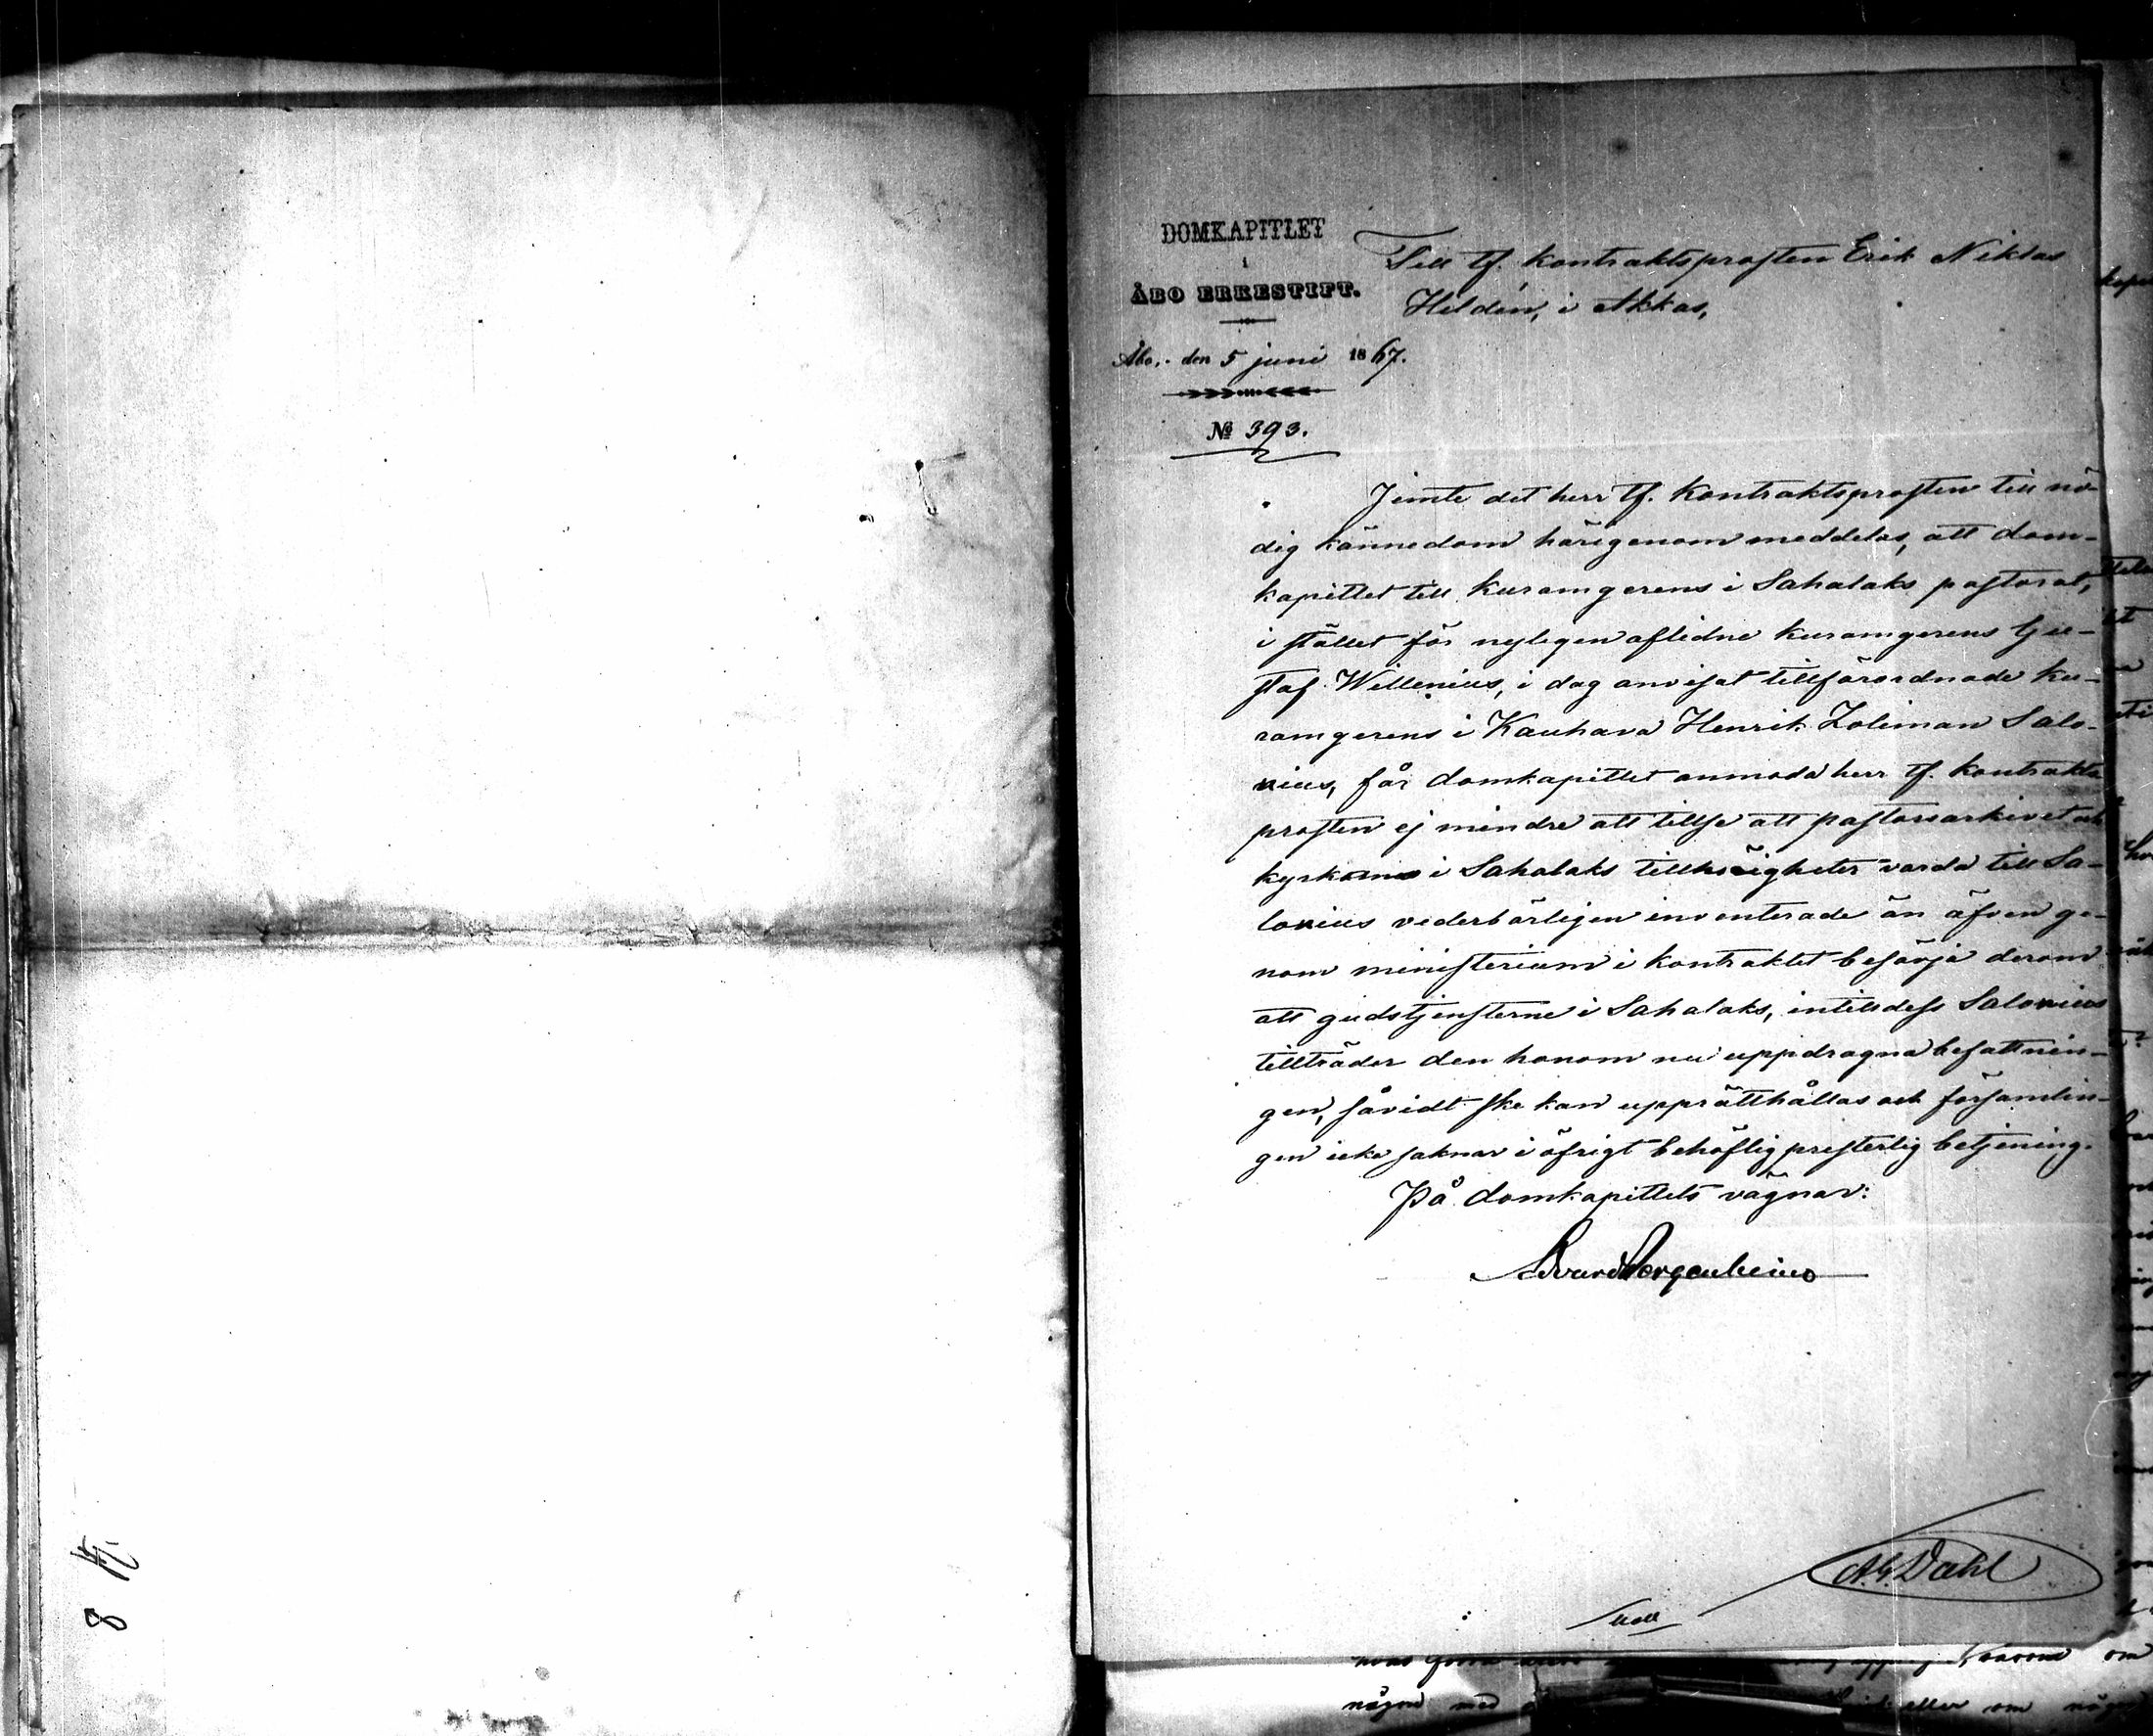 DOMKAPITLET
i
ÅBO ERKESTIFT.
Åbo, den 5 juni 1867.
№ 393.
Till tf. kontraktsprosten Erik Niklas
Heldén, i Akkas,
Jemte det herr tf. kontraktsprosten till nö-
dig kännedom härigenom meddelas, att dom-
kapitlet till kuramgerens i Sahalaks pastorat,
i stället för nyligen aflidne kuramgerens Gu-
staf Willenius, i dag anvisat tillförordnade ku-
ramgerens i Kauhava Henrik Zoliman Salo-
vius, får domkapitlet anmoda herr tf. kontrakts
prosten ej mindre att tillse att pastorsarkivet och
kyrkornas i Sahalaks tillhörigheter varda till Sa-
lovius vederbörligen inventerade än äfven ge-
nom ministerium i kontraktet besörja derom
att gudstjensterne i Sahalaks, intilldess Salovius
tillträder den honom nu uppdragna befattnin-
gen, såvidt ske kan upprätthållas och församlin-
gen icke saknar i öfrigt behöflig presterlig betjening.
På domkapitlets vägnar:
Edvard Bergenheim
A. G. Dahl
8